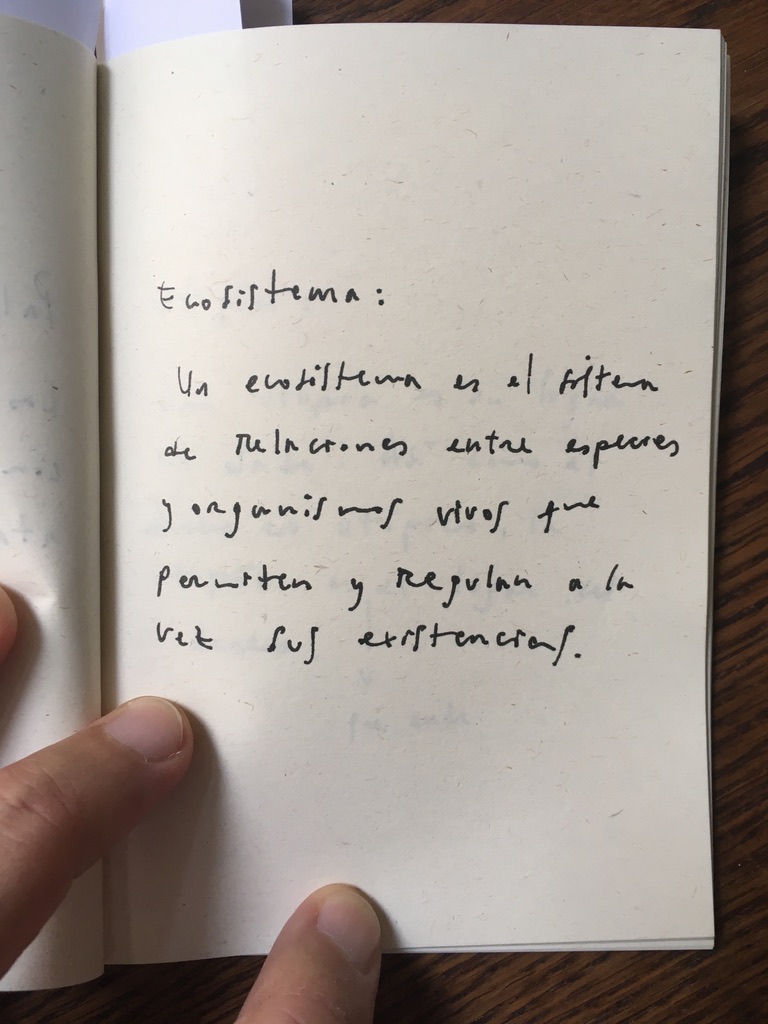 Ecosistema:
Un ecosistema es el sistema
de relaciones entre especies
y organismos vivos que
permiten y regulan a la
vez sus existencias.